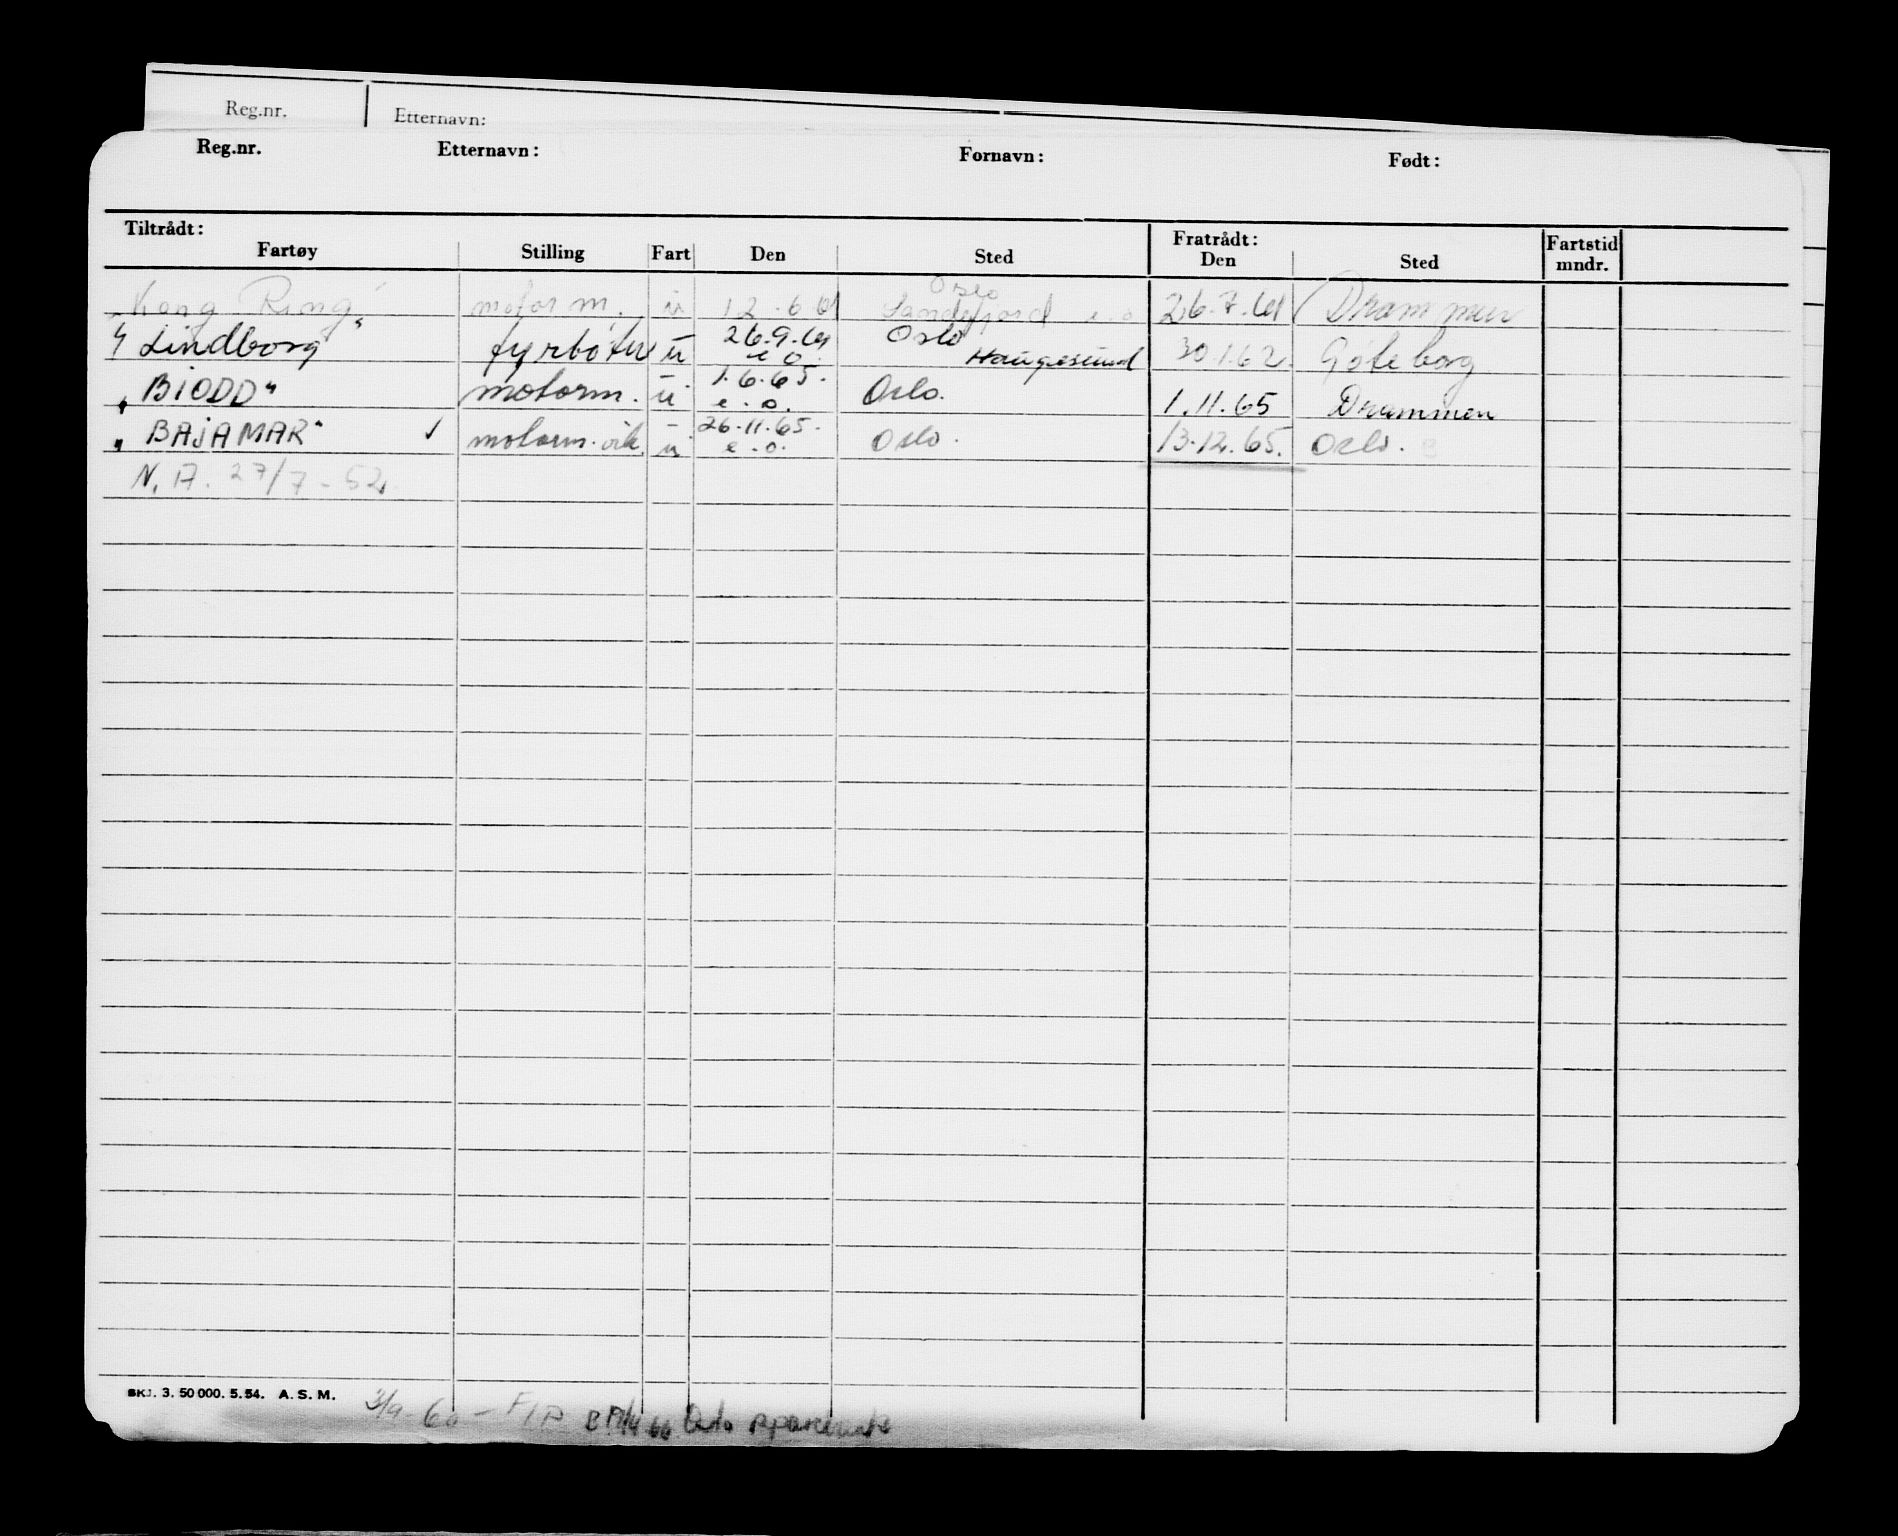 Reg.nr. Etternavn:
Reg.nr. Etternavn: Fornavn: Født:
Tiltrådt: Fratrådt: Fartstid
Fartøy Stilling Fart Den Sted Den Sted mndr.
Oslo
"Kong Ring" motorm. u 12.6.61 Sandefjord e.o 26.7.61 Drammen
"Lindborg" fyrbøter u 26.9.61 Oslo 30.1.62 Göteborg
e o. Haugesund
"BiODD" motorm. u 1.6.65. Oslo. 1.11.65 Drammen
e.o.
"BAJAMAR" ✓ motorm. vik. u 26.11.65. Oslo. 13.12.65. Oslo.
e.o.
N.A. 27/7-52
SKJ. 3. 50 000. 5.54. A. S. M. 3/9-60 - Oslo